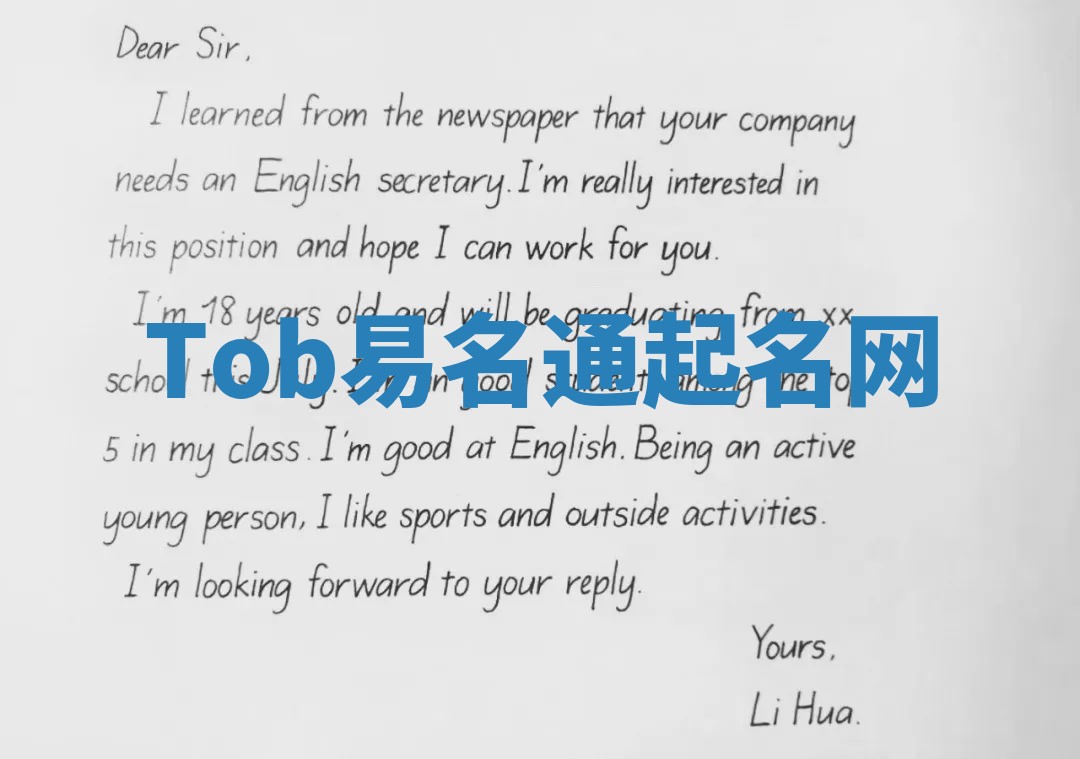 Dear Sir,
I learned from the newspaper that your company
needs an English secretary. I'm really interested in
this position and hope I can work for you.
I'm 18 years old and will be graduating from xx
Tob易名通起名网
school this July. I'm a good student among the top
5 in my class. I'm good at English. Being an active
young person, I like sports and outside activities.
I'm looking forward to your reply.
Yours,
Li Hua.